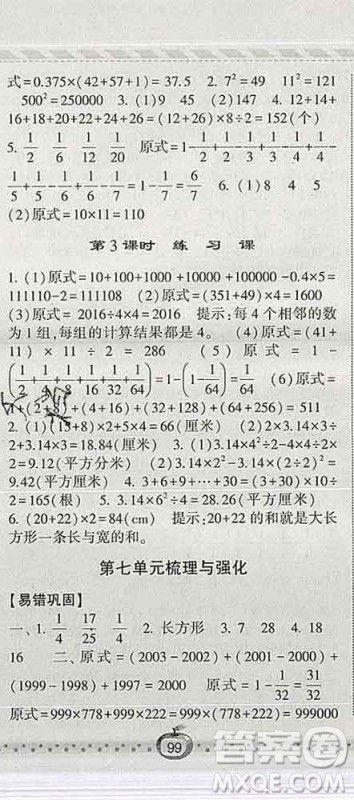 式=0.375×(42+57+1)=37.5 2. 7²=49 11²=121
500²=250000 3. (1)9 45 (2)147 4. 12+14+
16+18+20+22+24+26=(12+26)×8÷2=152(个)
5. 1/2 1/6 1/12 1/20 原式=1-1/2+1/2-1/3+1/3-1/4+1/4-
1/5+1/5-1/6+1/6-1/7=1-1/7=6/7 6. (1)8 4 5
(2)原式=10×11=110
第3课时 练 习 课
1. (1)原式=10+100+1000+10000+100000-0.4×5=
111110-2=111108 (2)原式=(351+49)×4=1600
(3)原式=2016÷4×4=2016 提示:每4个相邻的数
为1组,每组的计算结果都是4。 (4)原式=(41+
11)×11÷2=286 (5)原式=1-
(1/2+1/4+1/8+1/16+1/32+1/64)=1-(1-1/64)=1/64 (6)原式=
+(4+16)+(32+128)+(64+256)=511
2. (1)(15+8)×2+5×4=66(厘米) (2)2×3.14×3÷
2+3.14×3=18.84(厘米) 3. (1)3.14×2²-4×4÷2×
2=9.12(平方分米) (2)3.14×2²-3.14×(2÷2)²=
9.42(平方厘米) 4. 3+6+9+…+30=(3+30)×10÷
2=165(根) 5. 3.14×6²÷4=28.26(平方厘米)
6. (20+22)×2=84(cm) 提示:20+22的和就是大长
方形一条长与宽的和。
第七单元梳理与强化
【易错巩固】
一、1. 1/4 17/25 1/4 2. 长方形 3. 7 28 4. 18
16 二、原式=(2003-2002)+(2001-2000)+
(1999-1998)+1997=2000 原式=1-1/32=31/32
原式=999×778+999×222=999×1000=999000
99
答案圈
MXQE.COM